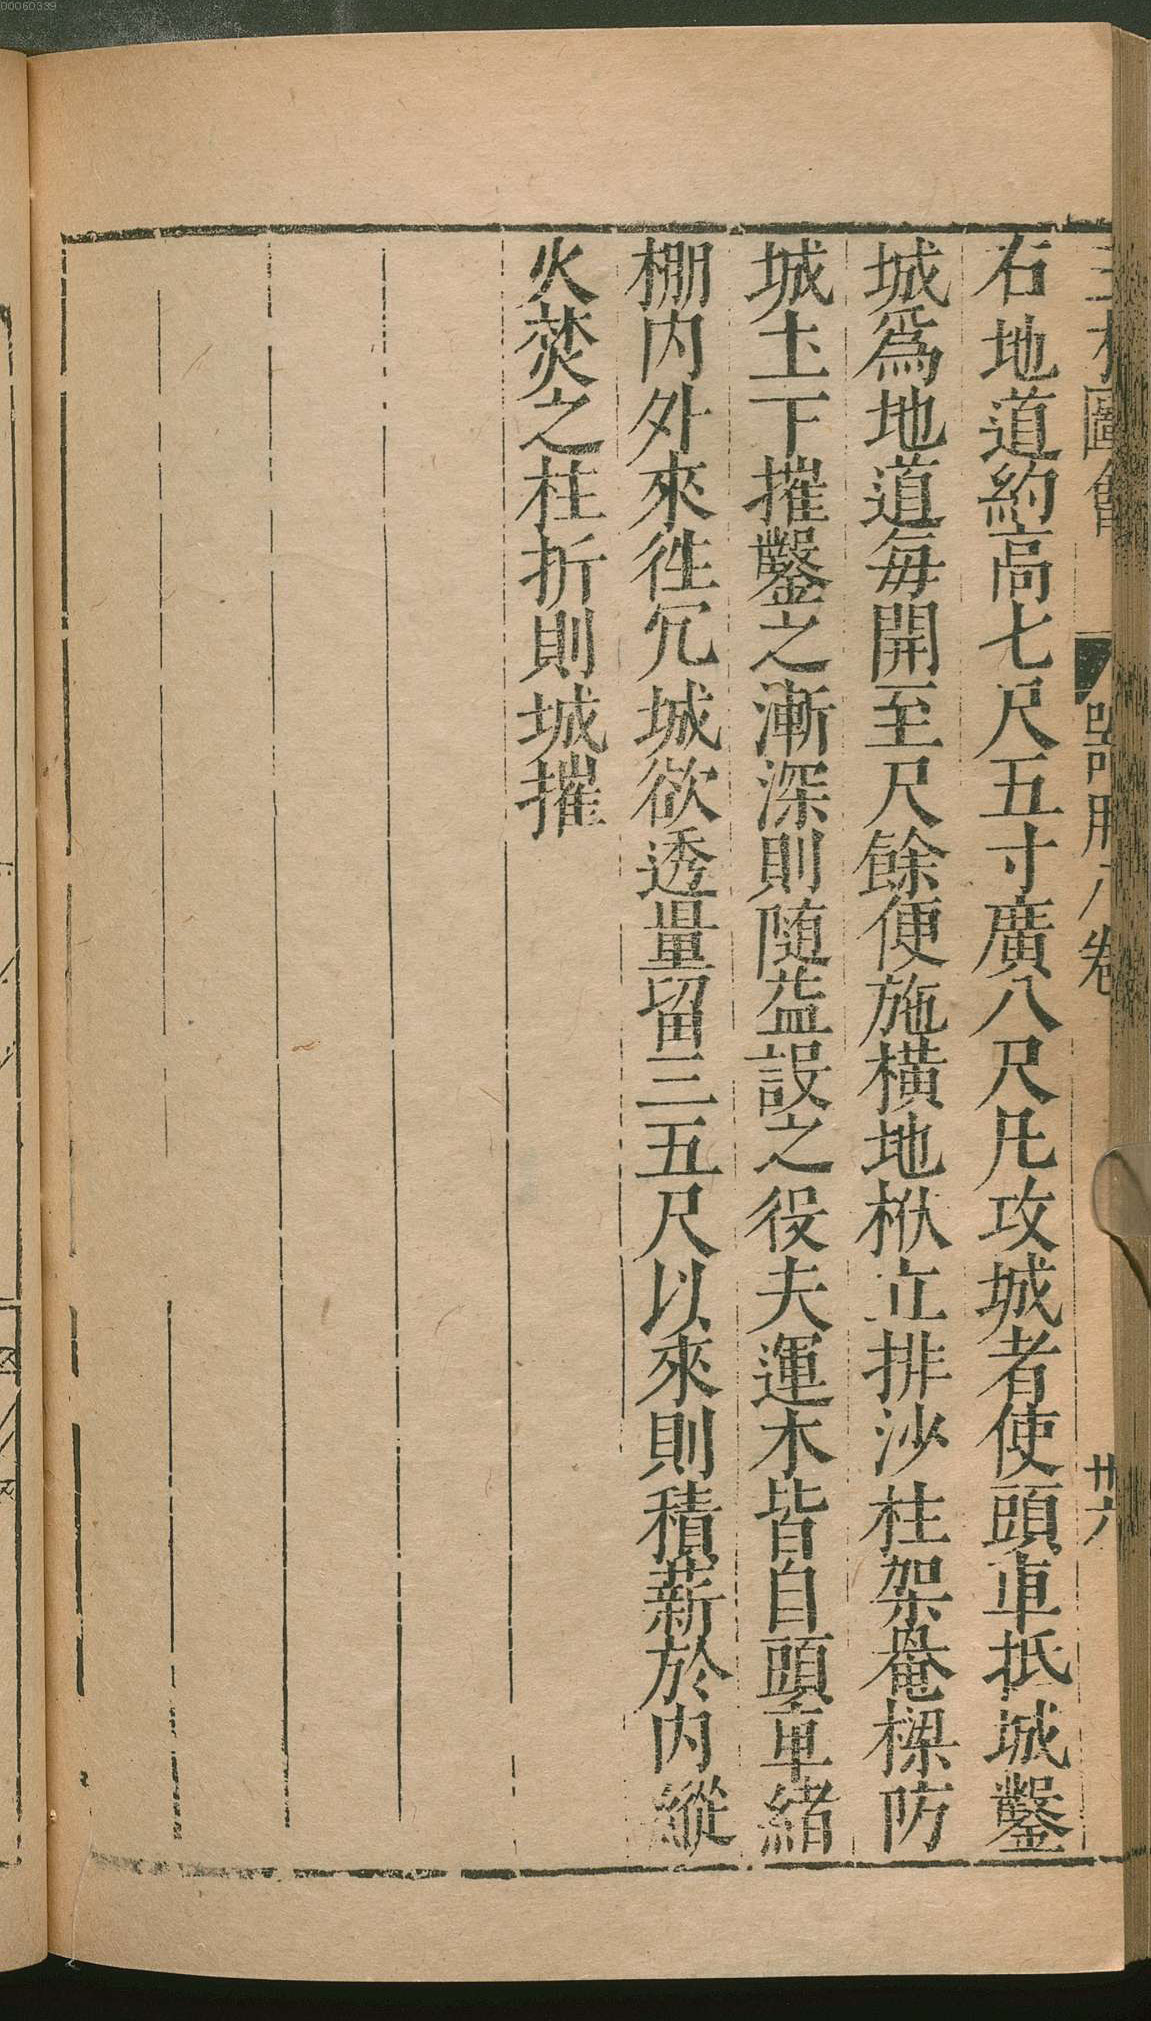 00060339
三才圖會
器用八卷
卅六
右地道約高七尺五寸廣八尺凡攻城者使頭車抵城鑿
城爲地道每開至尺餘便施橫地栿立排沙柱架菴樑防
城土下摧鑿之漸深則随益設之役夫運木皆自頭車緒
棚内外來徃冗城欲透量留三五尺以來則積薪於内縱
火焚之柱折則城摧